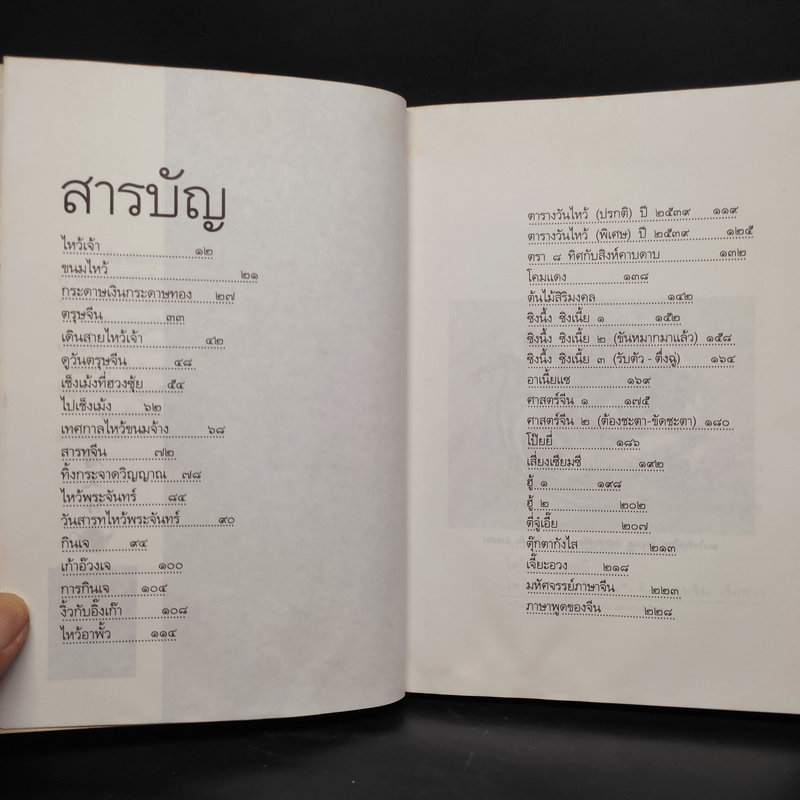 สารบัญ
ไหว้เจ้า ๑๒
ขนมไหว้ ๒๑
กระดาษเงินกระดาษทอง ๒๗
ตรุษจีน ๓๓
เดินสายไหว้เจ้า ๔๒
ดูวันตรุษจีน ๔๘
เช็งเม้งที่ฮวงซุ้ย ๕๔
ไปเช็งเม้ง ๖๒
เทศกาลไหว้ขนมจ้าง ๖๘
สารทจีน ๗๒
ทิ้งกระจาดวิญญาณ ๗๘
ไหว้พระจันทร์ ๘๔
วันสารทไหว้พระจันทร์ ๙๐
กินเจ ๙๔
เก้าอ๊วงเจ ๑๐๐
การกินเจ ๑๐๔
งิ้วกับอิ้งเก๊า ๑๐๘
ไหว้อาพั้ว ๑๑๔
ตารางวันไหว้ (ปรกติ) ปี ๒๕๓๙ ๑๑๙
ตารางวันไหว้ (พิเศษ) ปี ๒๕๓๙ ๑๒๕
ตรา ๘ ทิศกับสิงห์คาบดาบ ๑๓๒
โคมแดง ๑๓๘
ต้นไม้สิริมงคล ๑๔๒
ซิงนึ้ง ซิงเนี้ย ๑ ๑๕๒
ซิงนึ้ง ซิงเนี้ย ๒ (ขันหมากมาแล้ว) ๑๕๘
ซิงนึ้ง ซิงเนี้ย ๓ (รับตัว-ตึ่งฉู่) ๑๖๔
อาเนี้ยแซ ๑๖๙
ศาสตร์จีน ๑ ๑๗๕
ศาสตร์จีน ๒ (ต้องชะตา-ขัดชะตา) ๑๘๐
โป๊ยยี่ ๑๘๖
เสี่ยงเซียมซี ๑๙๒
ฮู้ ๑ ๑๙๘
ฮู้ ๒ ๒๐๒
ตี่จู่เอี๊ย ๒๐๗
ตุ๊กตากังไส ๒๑๓
เจี๊ยะอวง ๒๑๘
มหัศจรรย์ภาษาจีน ๒๒๓
ภาษาพูดของจีน ๒๒๘